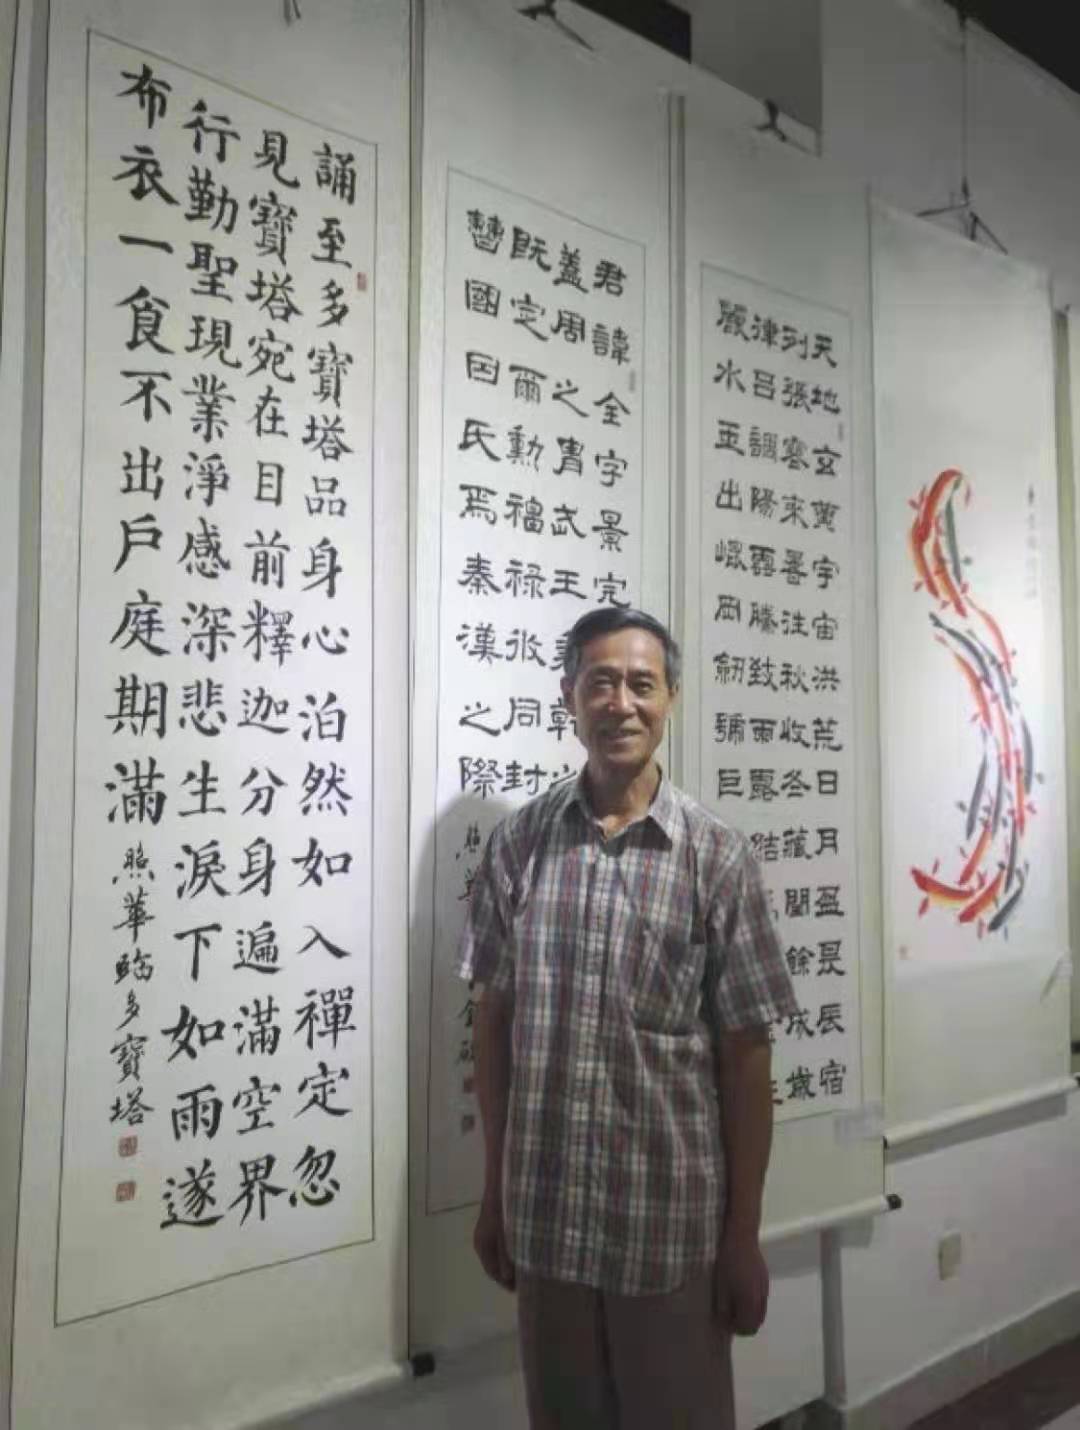 誦至多寶塔品身心泊然如入禪定忽
見寶塔宛在目前釋迦分身遍滿空界
行勤聖現業淨感深悲生淚下如雨遂
布衣一食不出戶庭期滿
照華臨多寶塔
君諱全字景完
蓋周之胄武王秉乾
既定爾勳福祿攸同封
𣍘國因氏焉秦漢之際
照華
天地玄黃宇宙洪荒日月盈昃辰宿
列張寒來暑往秋收冬藏閏餘成歲
律呂調陽雲騰致雨露結為
麗水玉出崐岡劍號巨